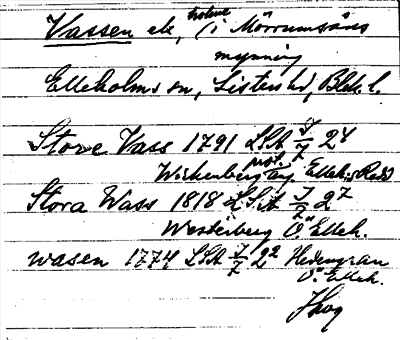 Vassen ek, holme (i Mörrumsåns
mynning
Elleholms sn, Listers hd, Blek. l.
Store Vass 1791 LSA J/7 24
Wickenberg prot. ang Elleh. Rå
Stora Wass 1818 LSA J/7 27
Westerberg Ö. Elleh.
wasen 1774 LSA J/7 22 Hedengran
Ö. Elleh.